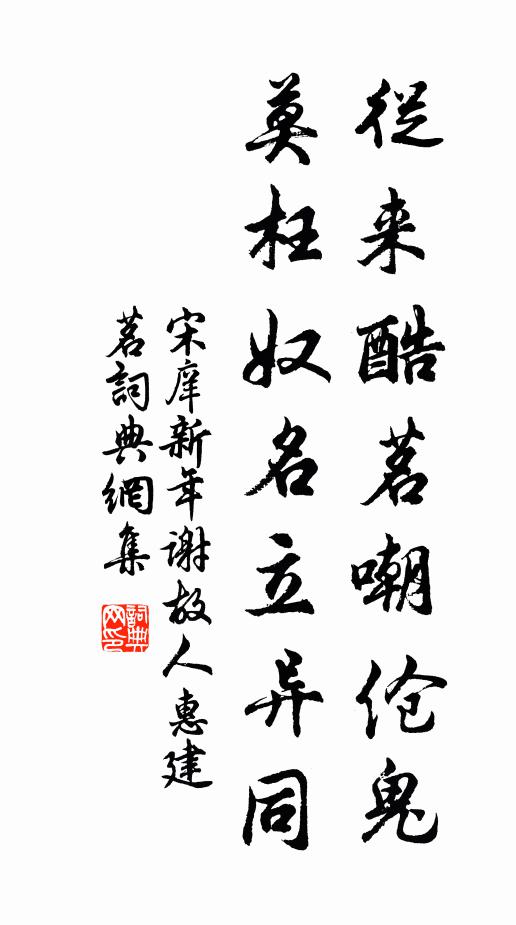 從来酷茗嘲伧鬼
莫枉奴名立异同
宋庠新年谢故人惠建
茗詞典網集
詞典网印